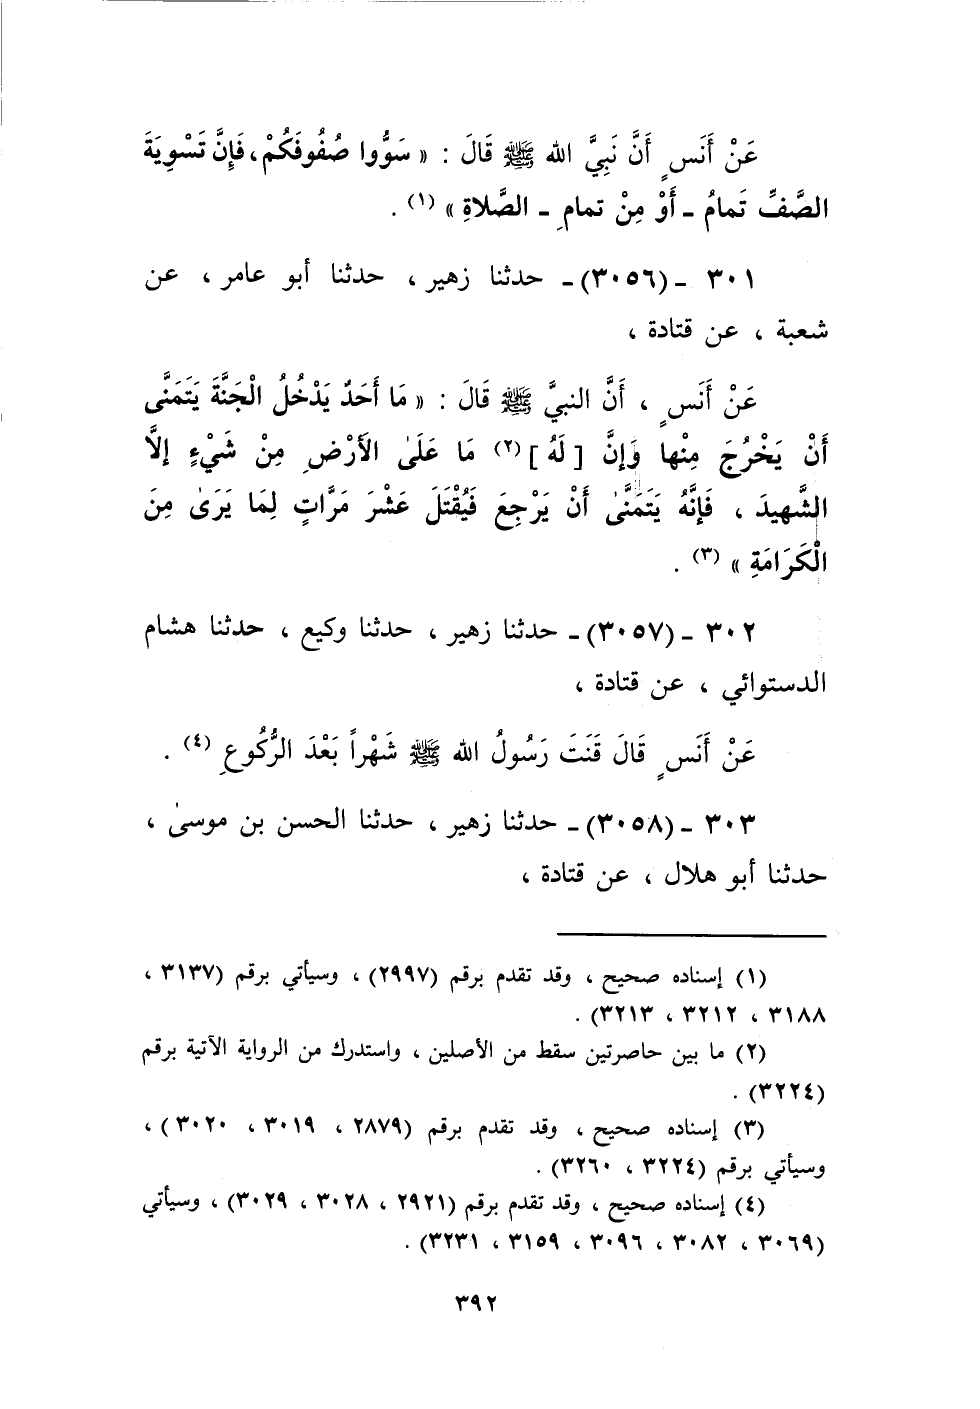 عَنْ أَنَسٍ أَنَّ نَبِيَّ الله ﷺ قَالَ : « سَوُّوا صُفُوفَكُمْ ، فَإِنَّ تَسْوِيَةَ
الصَّفِّ تَمامُ ـ أَوْ مِنْ تمامِ ـ الصَّلاةِ » (١) .
٣٠١ ـ (٣٠٥٦) ـ حدثنا زهير ، حدثنا أبو عامر ، عن
شعبة ، عن قتادة ،
عَنْ أَنَسٍ ، أَنَّ النبيَّ ﷺ قَالَ : « مَا أَحَدٌ يَدْخُلُ الْجَنَّةَ يَتَمَنَّى
أَنْ يَخْرُجَ مِنْها وَإِنَّ [ لَهُ ] (٢) مَا عَلَىٰ الأَرْضِ مِنْ شَيْءٍ إلاَّ
الشَّهِيدَ ، فَإِنَّهُ يَتَمَنَّىٰ أَنْ يَرْجِعَ فَيُقْتَلَ عَشْرَ مَرَّاتٍ لِمَا يَرَىٰ مِنَ
الْكَرَامَةِ » (٣) .
٣٠٢ ـ (٣٠٥٧) ـ حدثنا زهير ، حدثنا وكيع ، حدثنا هشام
الدستوائي ، عن قتادة ،
عَنْ أَنَسٍ قَالَ قَنَتَ رَسُولُ الله ﷺ شَهْراً بَعْدَ الرُّكُوعِ (٤) .
٣٠٣ ـ (٣٠٥٨) ـ حدثنا زهير ، حدثنا الحسن بن موسىٰ ،
حدثنا أبو هلال ، عن قتادة ،
(١) إسناده صحيح ، وقد تقدم برقم (٢٩٩٧) ، وسيأتي برقم (٣١٣٧ ،
٣١٨٨ ، ٣٢١٢ ، ٣٢١٣) .
(٢) ما بين حاصرتين سقط من الأصلين ، واستدرك من الرواية الآتية برقم
(٣٢٢٤) .
(٣) إسناده صحيح ، وقد تقدم برقم (٢٨٧٩ ، ٣٠١٩ ، ٣٠٢٠) ،
وسيأتي برقم (٣٢٢٤ ، ٣٢٦٠) .
(٤) إسناده صحيح ، وقد تقدم برقم (٢٩٢١ ، ٣٠٢٨ ، ٣٠٢٩) ، وسيأتي
(٣٠٦٩ ، ٣٠٨٢ ، ٣٠٩٦ ، ٣١٥٩ ، ٣٢٣١) .
٣٩٢